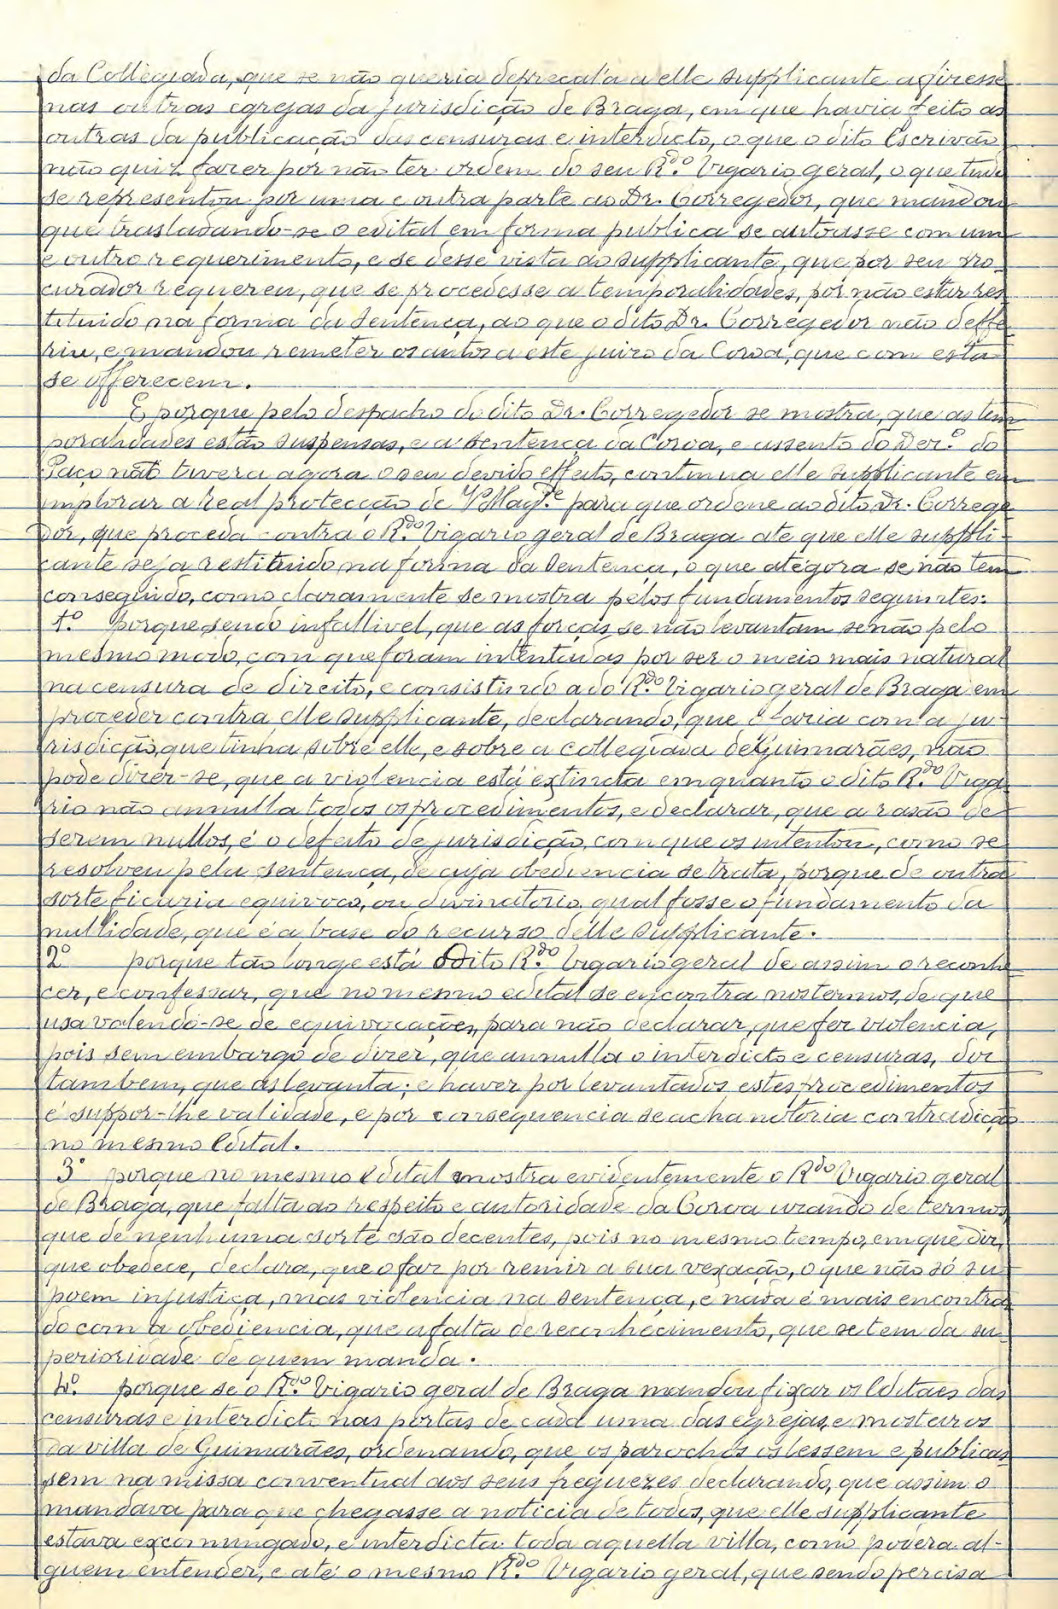 da Collegiada, que se não queria deprecal'a a elle supplicante agiresse
nas outras egrejas da jurisdicção de Braga, em que havia feito as
outras da publicação das censuras e interdicto, o que o dito Escrivão
não quiz fazer por não ter ordem do seu R.do Vigario geral, o que tudo
se representou por uma e outra parte ao Dr. Corregedor, que mandou
que trasladando-se o edital em forma publica se autoasse com um
e outro requerimento, e se desse vista ao supplicante, que por seu pro-
curador requereu, que se procedesse a temporalidades, por não estar res-
tituido na forma da sentença, ao que o dito Dr. Corregedor não deffe-
riu, e mandou remeter os autos a este juizo da Coroa, que com esta
se offerecem.
E porque pelo despacho do dito Dr. Corregedor se mostra, que as tem-
poralidades estão suspensas, e a sentença da Coroa, e assento do Dez.o do
Paço não tivera agora o seu devido effeito, continua elle supplicante em
implorar a real protecção de V. Mag.de para que ordene ao dito Dr. Correge-
dor, que proceda contra o R.do Vigario geral de Braga até que elle suppli-
cante seja restituido na forma da Sentença, o que atégora se não tem
conseguido, como claramente se mostra pelos fundamentos seguintes:
1.o porque sendo infallivel, que as forças se não levantam senão pelo
mesmo modo, com que foram intentadas por ser o meio mais natural
na censura de direito, e consistindo a do R.do Vigario geral de Braga em
proceder contra elle supplicante, declarando, que o faria com a ju-
risdicção, que tinha sobre elle, e sobre a collegiada de Guimarães, não
pode dizer-se, que a violencia está extincta emquanto o dito R.do Viga-
rio não annulla todos os procedimentos, e declarar, que a rasão de
serem nullos, é o defeito de jurisdicção, com que os intentou, como se
resolveu pela sentença, de cuja obediencia se trata, porque de outra
sorte ficaria equivoco, ou divinatorio qual fosse o fundamento da
nullidade, que é a base do recurso delle supplicante.
2o porque tão longe está o dito R.do Vigario geral de assim o reconhe-
cer, e confessar, que no mesmo edital se encontra nos termos, de que
usa valendo-se de equivocações, para não declarar, que fez violencia,
pois sem embargo de dizer, que annulla o interdicto e censuras, diz
tambem, que as levanta; e haver por levantados estes procedimentos
é suppor-lhe validade, e por consequencia se acha notoria contradicção
no mesmo Edital.
3o porque no mesmo edital mostra evidentemente o R.do Vigario geral
de Braga, que falta ao respeito e autoridade da Coroa usando de termos,
que de nenhuma sorte são decentes, pois no mesmo tempo, em que diz,
que obedece, declara, que o faz por remir a sua vexação, o que não só su-
poem injustiça, mas violencia na sentença, e nada é mais encontra-
do com a obediencia, que a falta de reconhecimento, que se tem da su-
perioridade de quem manda.
4o. porque se o R.do Vigario geral de Braga mandou fixar os Editaes das
censuras e interdicto nas portas de cada uma das egrejas, e mosteiros
da villa de Guimarães, ordenando, que os parochos os lessem e publicas-
sem na missa conventual aos seus freguezes declarando, que assim o
mandava para que chegasse a noticia de todos, que elle supplicante
estava excomungado, e interdicta toda aquella villa, como podera al-
guem entender, e até o mesmo R.do Vigario geral, que sendo percisa